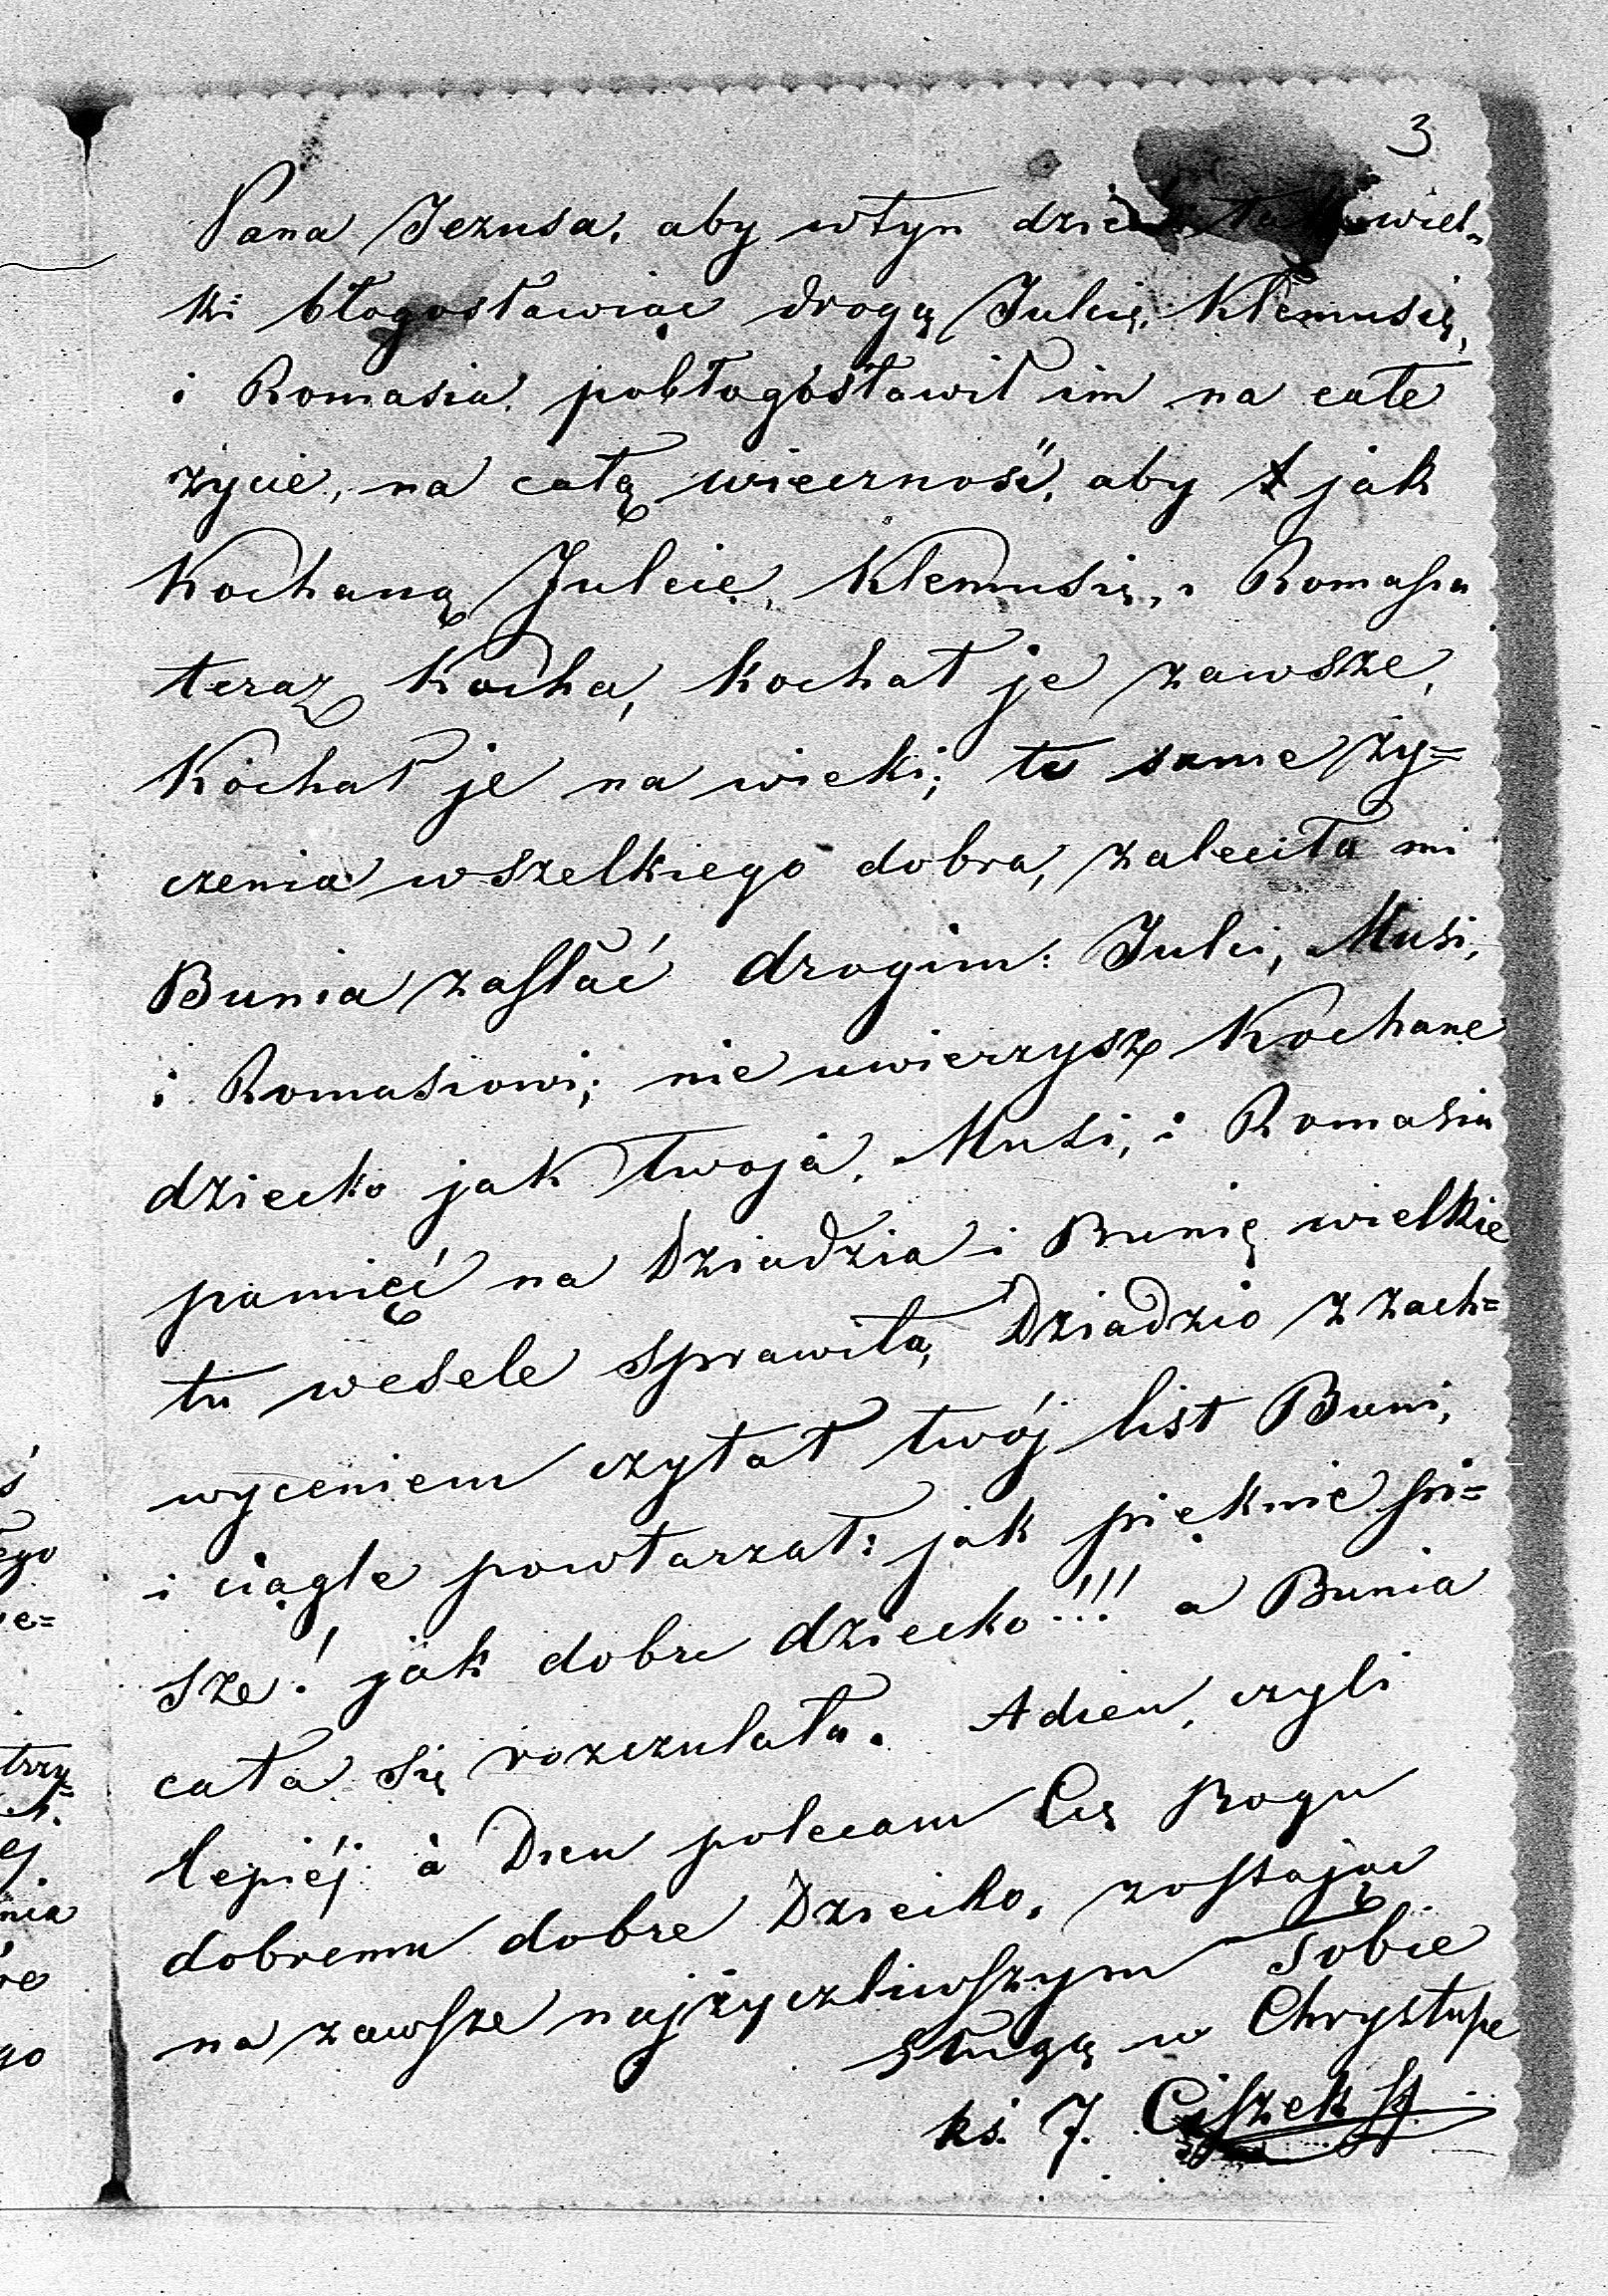 3
Pana Jezusa, aby w tyn dzień tak wiel-
ki błogosławiąc drogą Julcię, Klemusię,
i Romasia, pobłogosławił im na całe
życie, na całą wieczność, aby jak
Kochaną Julcię, Klemusię, i Romasia
teraz Kocha, kochał je zawsze,
Kochał je na wieki; te same ży=
czenia wszelkiego dobra, zaleciła mi
Bunia zasłać drogim: Julci, Musi,
i Romasiowi; nie uwierzysz Kochane
dziecko jak Twoja, Musi, i Romasia
pamięć na Dziadzia i Bunię wielkie
tu wesele sprawiła, Dziadzio z zach=
wyceniem czytał twój list Buni,
i ciągle powtarzał: jak pięknie pi=
sze! jak dobre dziecko!!! a Bunia
cała się rozczulała. Adieu, czyli
lepiéj à Dieu polecam Cię Bogu
dobremu dobre Dziecko, zostając
na zawsze najżyczliwszym Tobie
sługą w Chrystusie
ks. J. Ciszek
ś
ego
e=
trzy
ej.
nia
re
go